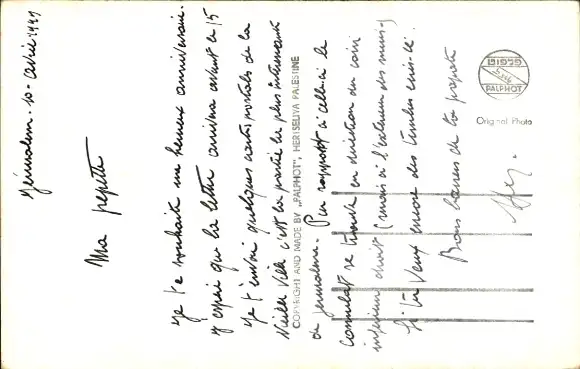 Jérusalem. 10 - Avril 1947
Ma pepette
Je te souhaite un heureux anniversaire.
J'espère que la lettre arrivera avant le 15
Je t'envoi quelques cartes postales de la
Vieille Ville c'est la partie la plus intéressante
de Jerusalem. Par rapport à celle-ci le
consulat se trouve en direction du coin
inférieur droit (mais à l'extérieur des murs)
Si tu veux encore des timbres écris-le.
Bons baisers de ta
COPYRIGHT AND MADE BY „PALPHOT", HERSELIYA PALESTINE
PALPHOT
Original Photo